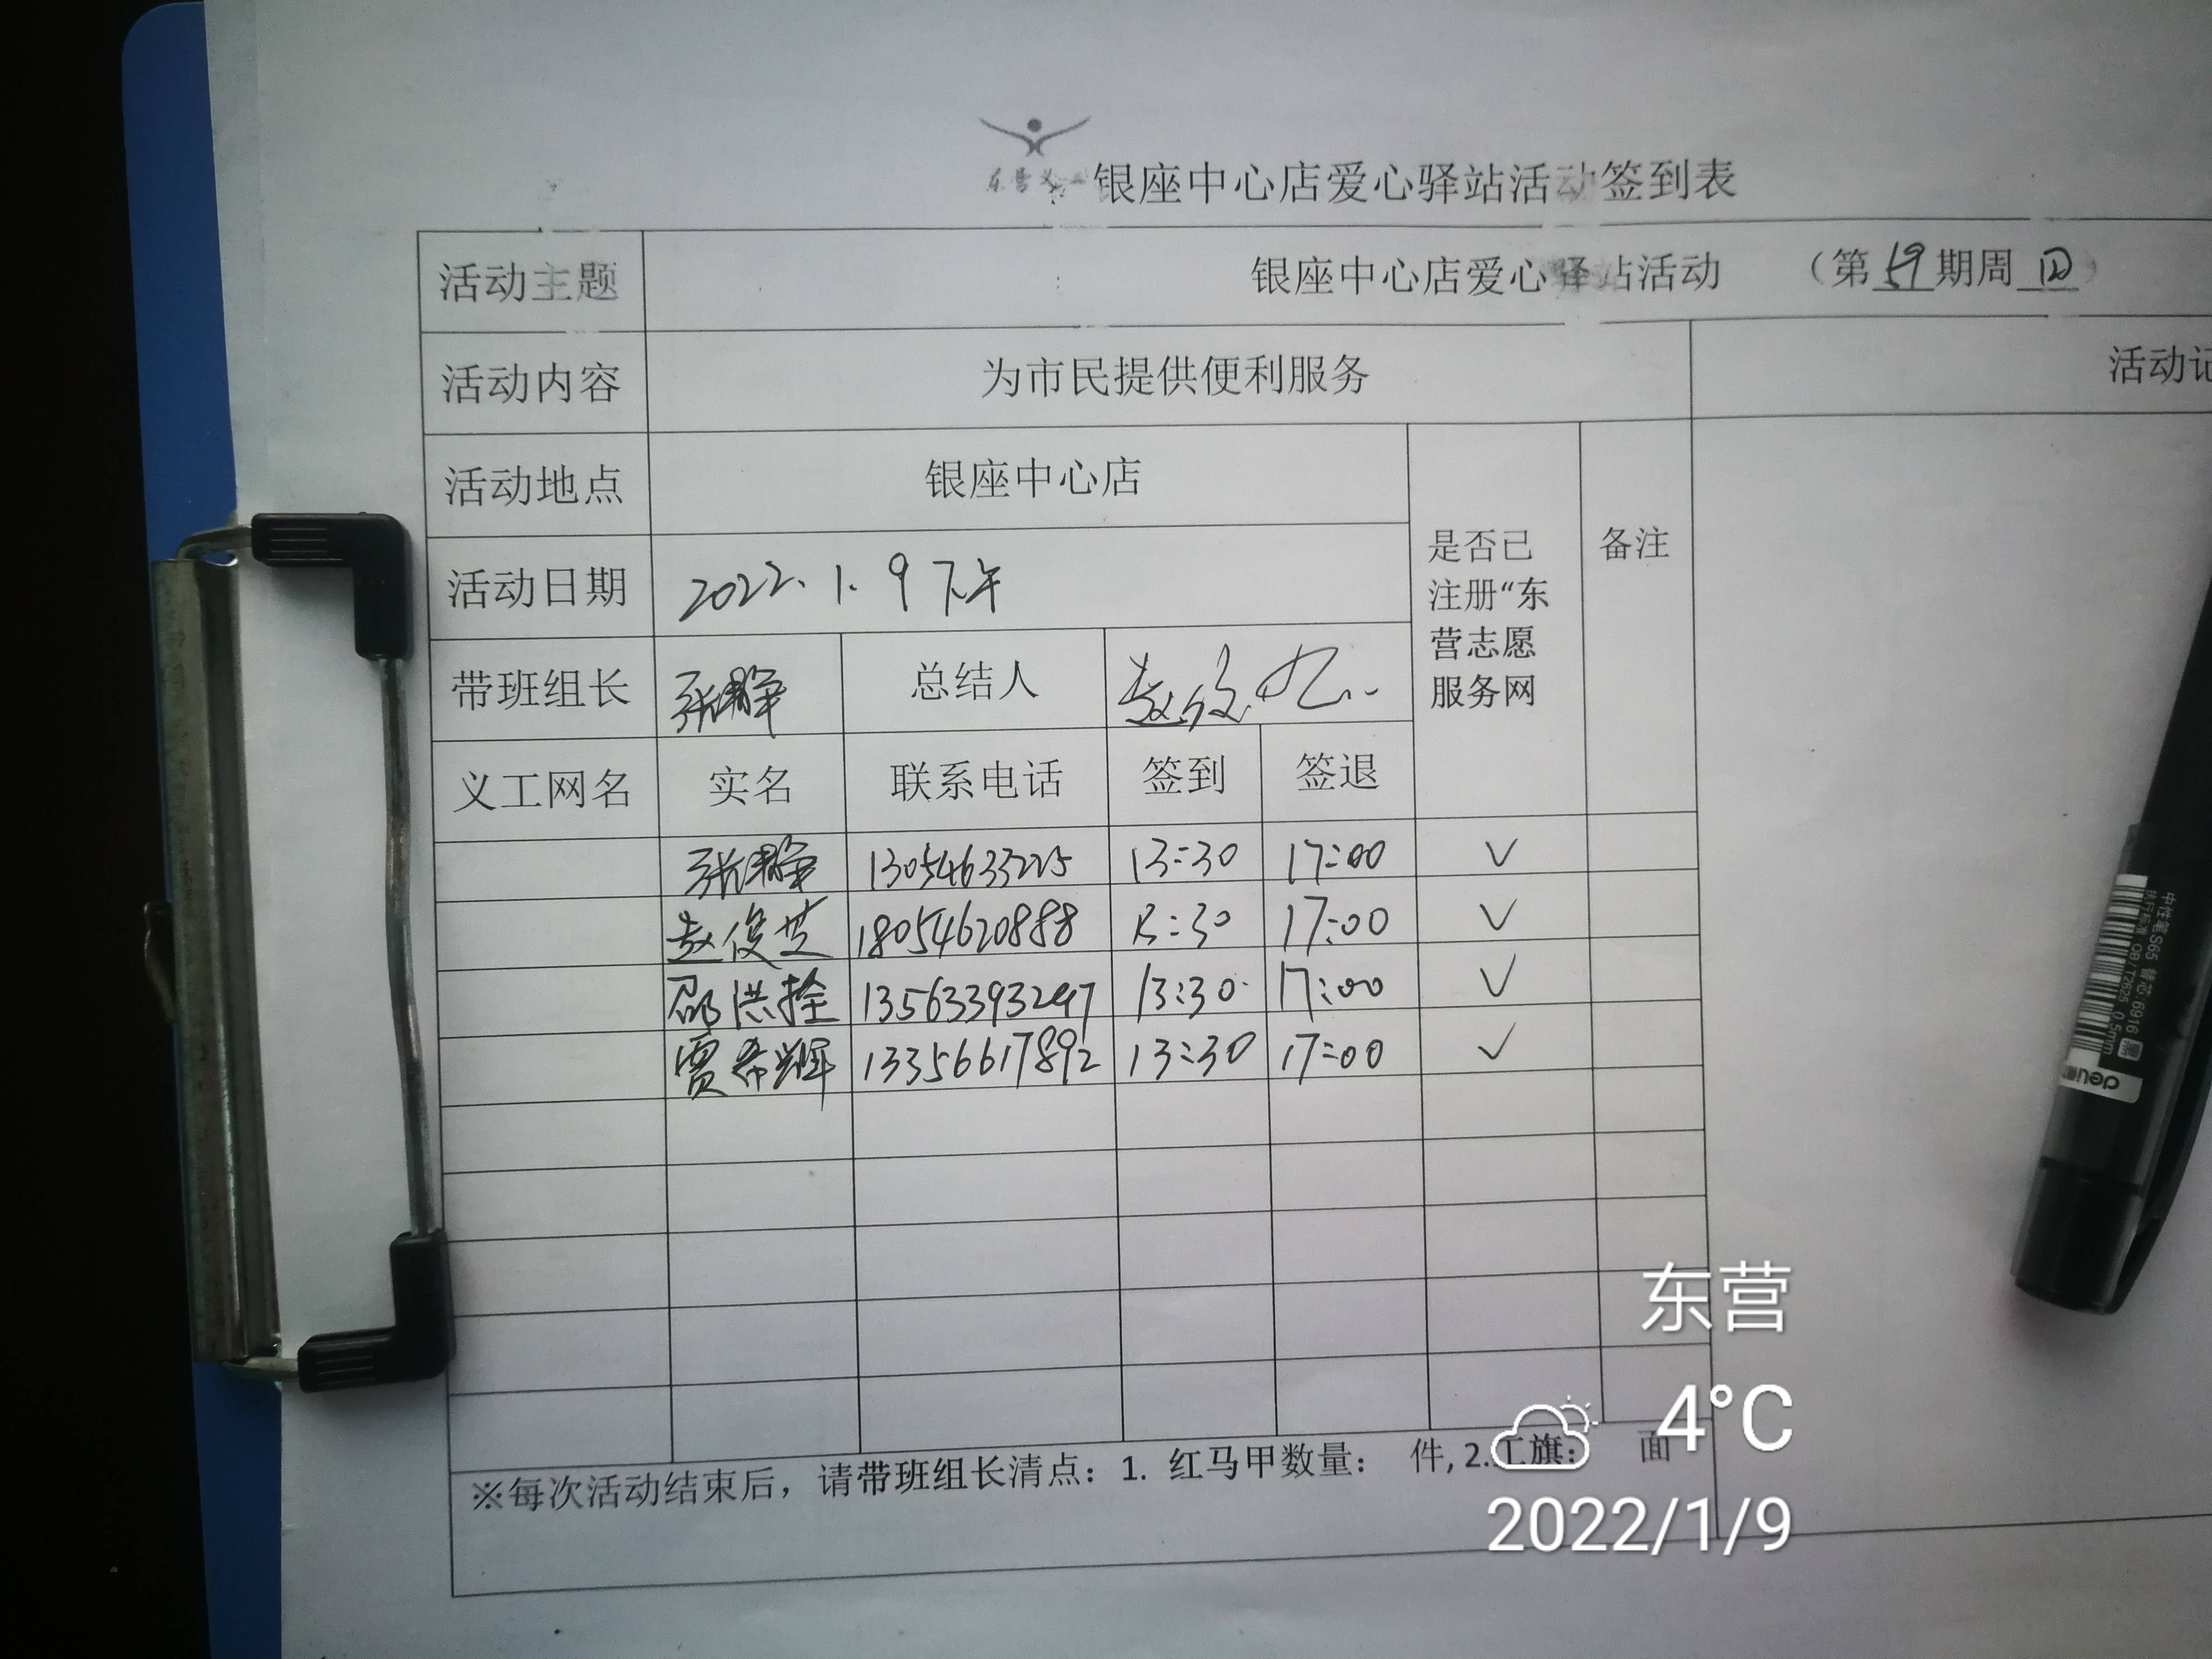 东营义工
银座中心店爱心驿站活动签到表
活动主题 银座中心店爱心驿站活动 （第19期周四）
活动内容 为市民提供便利服务 活动记
活动地点 银座中心店
活动日期 2022.1.9下午
是否已注册“东营志愿服务网 备注
带班组长 张 总结人 赵俊芝
义工网名 实名 联系电话 签到 签退
张 13054633225 13:30 17:00 √
赵俊芝 18054620888 13:30 17:00 √
邵洪拴 13563393247 13:30 17:00 √
贾希辉 13356617892 13:30 17:00 √
※每次活动结束后，请带班组长清点：1. 红马甲数量： 件, 2.工旗： 面
东营
4°C
2022/1/9
中性笔S65 替芯6916 黑
执行标准：QB/T2625 0.5mm
deli